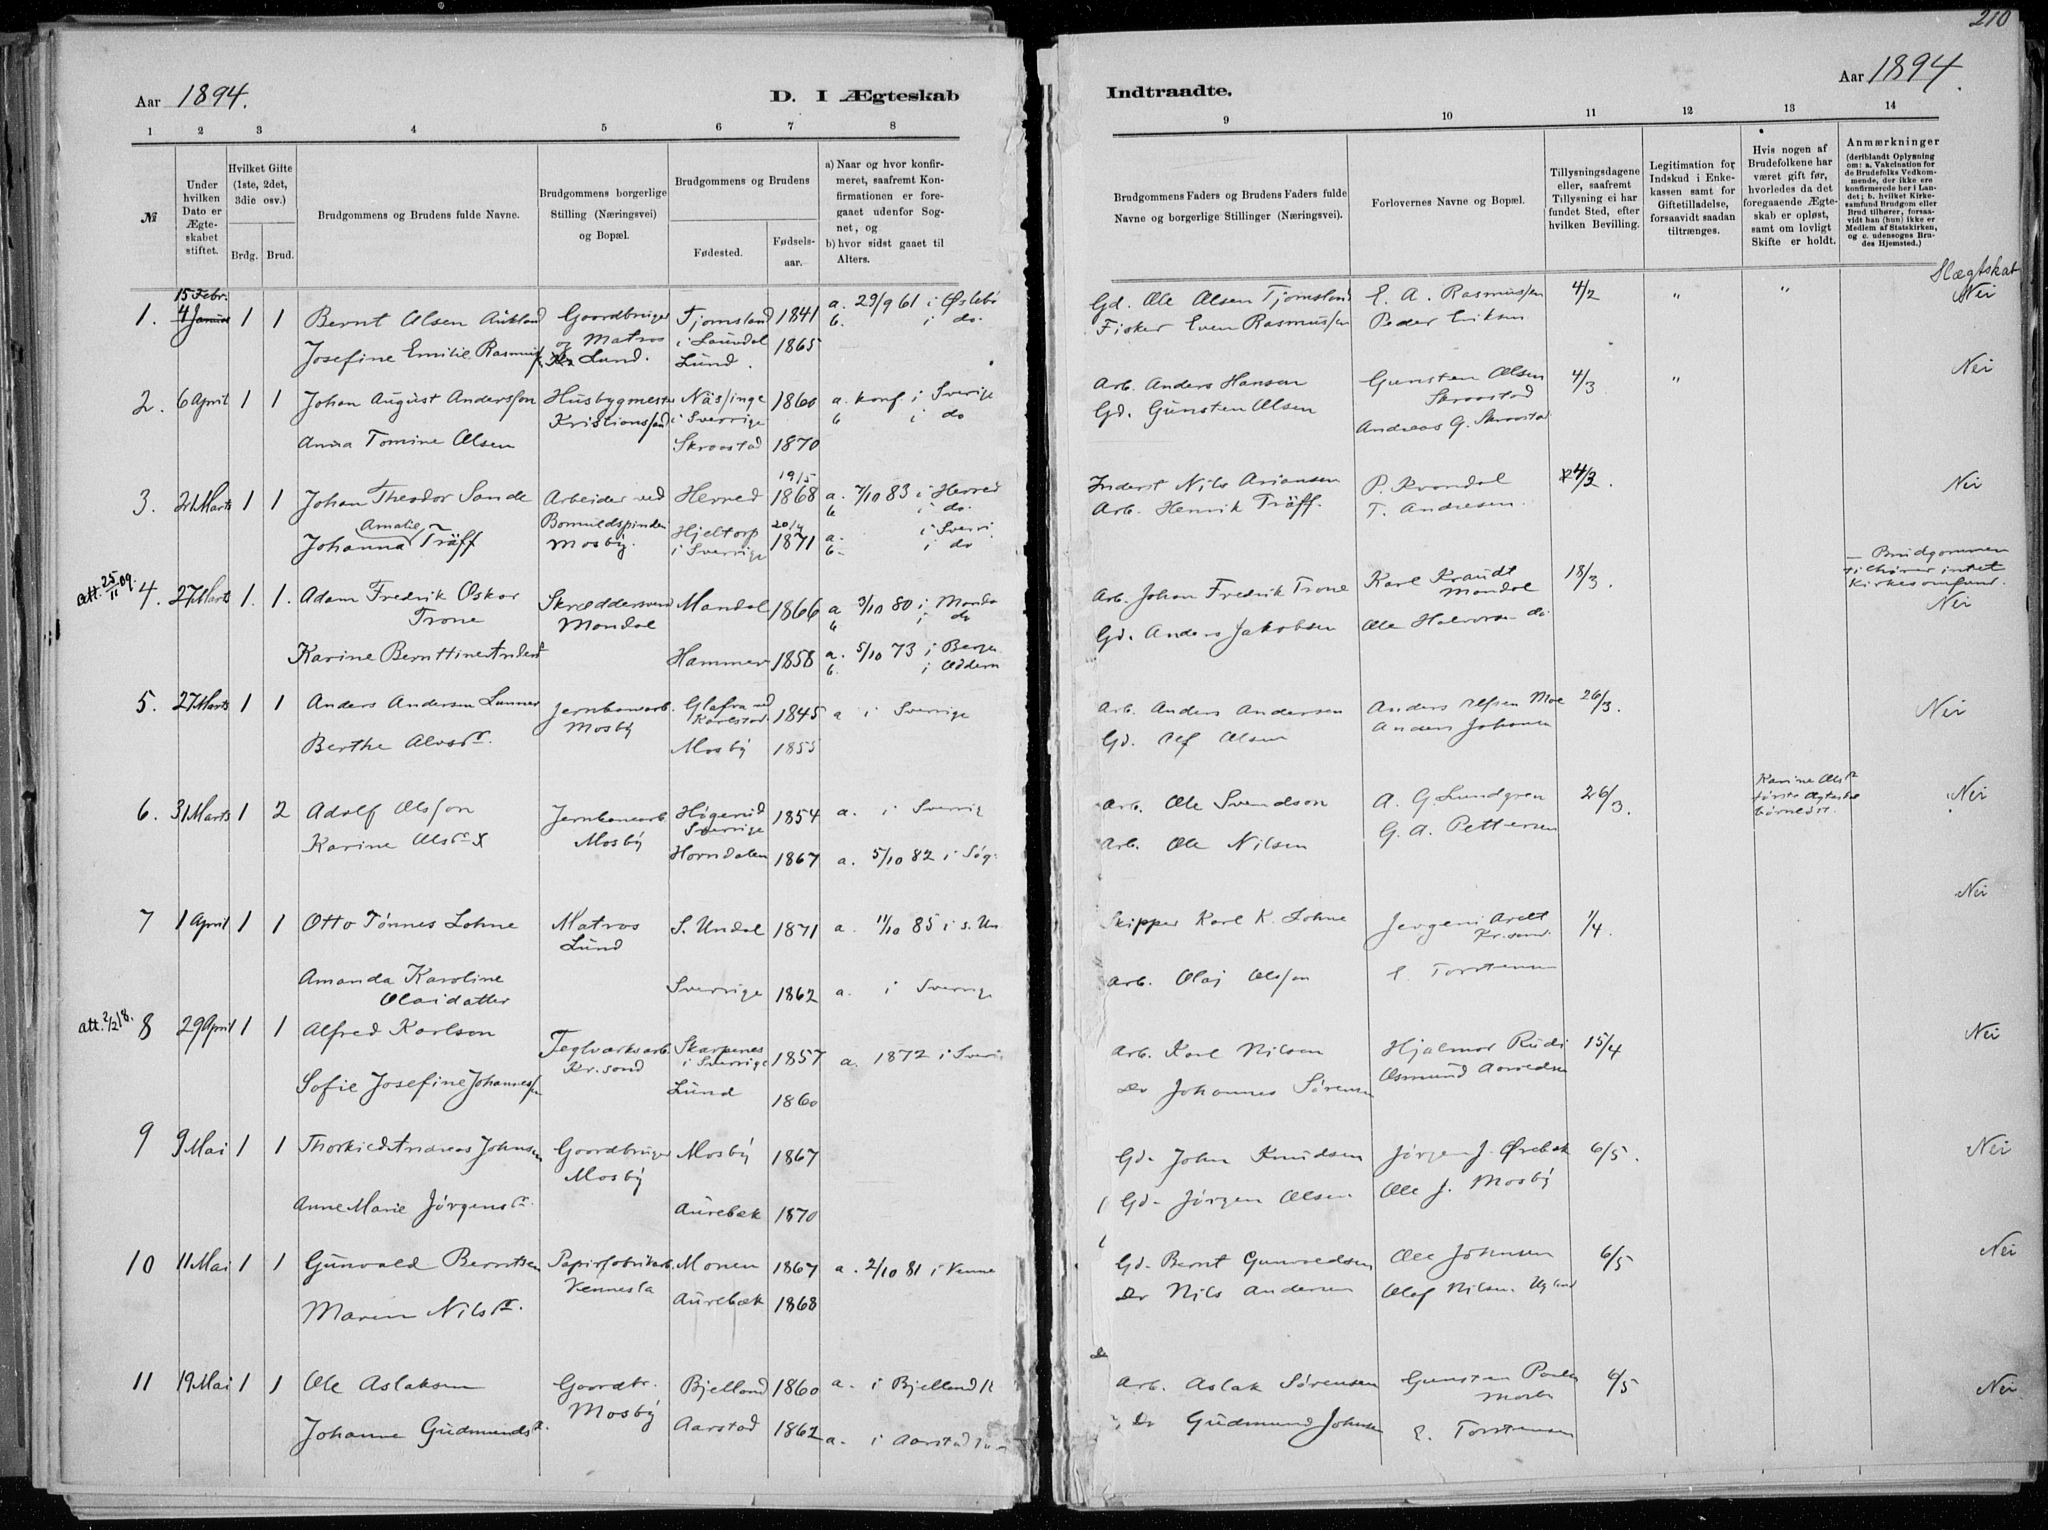 210
Aar 1894.
D. I Ægteskab
Indtraadte.
Aar 1894.
1 2 3 4 5 6 7 8
9 10 11 12 13 14
№
Under hvilken Dato er Ægteskabet stiftet.
Hvilket Gifte (1ste, 2det, 3die osv.)
Brdg. Brud.
Brudgommens og Brudens fulde Navne.
Brudgommens borgerlige Stilling (Næringsvei) og Bopæl.
Brudgommens og Brudens
Fødested. Fødselsaar.
a) Naar og hvor konfirmeret, saafremt Konfirmationen er foregaaet udenfor Sognet, og
b) hvor sidst gaaet til Alters.
Brudgommens Faders og Brudens Faders fulde Navne og borgerlige Stillinger (Næringsvei).
Forlovernes Navne og Bopæl.
Tillysningsdagene eller, saafremt Tillysning ei har fundet Sted, efter hvilken Bevilling.
Legitimation for Indskud i Enkekassen samt for Giftetilladelse, forsaavidt saadan tiltrænges.
Hvis nogen af Brudefolkene har været gift før, hvorledes da det foregaaende Ægteskab er opløst, samt om lovligt Skifte er holdt.
Anmærkninger
(deriblandt Oplysning om: a. Vakcination for de Brudefolks Vedkommende, der ikke ere konfirmerede her i Landet; b. hvilket Kirkesamfund Brudgom eller Brud tilhører, forsaavidt han (hun) ikke er Medlem af Statskirken, og c. udensogns Brudes Hjemsted.)
Slægtskab
15 Febr.
1. 4 Januar 1 1 Bernt Olsen Aukland Goordbruger Tjomsland 1841 a. 29/9 61 i Øslebø
og Matros i Laudal b. i do.
Josefine Emilie Rasmuss Lund. Lund. 1865
Gd. Ole Olsen Tjomsland E. A. Rasmussen 4/2 " " Nei
Fisker Even Rasmussen Peder Eriksen
2. 6 April 1 1 Johan August Andersson Husbygmester Näsinge 1860 a. konf. i Sverige
Kristianssand i Sverrige b i do
Anna Tomine Olsen Skraastad 1870
Arb. Anders Hansen Gunsten Olsen Skraastad 4/3 " Nei
Gd. Gunsten Olsen Andreas G. Skraastad
19/5
3. 21 Marts 1 1 Johan Theodor Sande Arbeider ved Herred 1868 a. 7/10 83 i Herred
Bomuldspinden b. i do.
Amalie Mosby. Hjeltorp 20/4 a. i Sverri
Johanna Träff i Sverrige 1871 b. i do
Inderst Nils Arianson P. Kvandal 4/3. Nei
Arb. Henrik Träff. T. Andresen.
att. 25/11 09.
4. 27 Marts 1. 1. Adam Fredrik Oskar Trone Skræddersvend Mandal 1866 a 3/10 80 i Manda
Mandal b i do
Karine Bernttine Anders Hammer 1858 a. 5/10 73 i Berge
b. i Oddern
Arb. Johan Fredrik Trone Karl Krandt Mandal 18/3. – Brudgommen tilhører intet Kirkesamfund.
Nei
Gd. Anders Jakobsen Ole Halvorsen do
5. 27 Marts 1 1 Anders Andersen Lunner Jernbanearb. Glafva ved Karlstad 1845 a i Sverrige
Mosby
Berthe Alvsdr. Mosby 1855
Arb. Anders Andersen Anders Alfsen Moe 26/3. Nei
Gd. Alf Olsen Anders Johansen
6. 31 Marts 1 2 Adolf Olsson Jernbanearb. Högerud Sverrige 1854 a. i Sverrig
Karine Olsdr X Mosby Horndalen 1867 a. 5/10 82 i Søg.
Arb. Ole Svendson A. G. Lundgren 26/3. Karine Olsdr første Ægteskab børneløst. Nei
Arb. Ole Nilsen G. A. Pettersen
7 1 April 1 1 Otto Tønnes Lohne Matros S. Undal 1871 a. 11/10 85 i s. Un
Lund
Amanda Karoline Olaidatter Sverrige 1862 a. i Sverrige
Skipper Karl K. Lohne Jørgen Aralt Kr.sand. 1/4. Nei
Arb. Olaj Olsson E. Torstensen
att. 2/2 18.
8 29 April 1 1 Alfred Karlson Teglværksarb. Skarpenes i Sverrige 1857 a. 1872 i Sveri
Kr.sand
Sofie Josefine Johannessen Lund 1860
Arb. Karl Nilsen Hjalmar Rudi 15/4 Nei
Do Johannes Sørensen Osmund Aanedsen
9 9 Mai 1 1 Thorkild Andreas Johnsen Goordbruger Mosby 1867
Mosby
Anne Marie Jørgensdr. Aurebæk 1870
Gd. John Knudsen Jørgen J. Ørebæk 6/5. Nei
Gd. Jørgen Olsen. Ole J. Mosby
10 11 Mai 1 1 Gunvald Berntsen Papirfabrikarb. Monen 1867 a. 2/10 81 i Venne
Vennesla
Maren Nilsdr. Aurebæk 1868
Gd. Bernt Gunvaldsen Ole Johnsen 6/5 Nei
Do Nils Andersen Olaf Nilsen. Ugland
11 19 Mai 1 1 Ole Aslaksen Goordbr. Bjelland 1860 a. i Bjelland K
Mosby
Johanne Gudmundsdr. Aarstad 1862 a. i Aarstad
Arb. Aslak Sørensen Gunsten Mosby 6/5 Nei
Do Gudmund Johnsen E. Torstensen